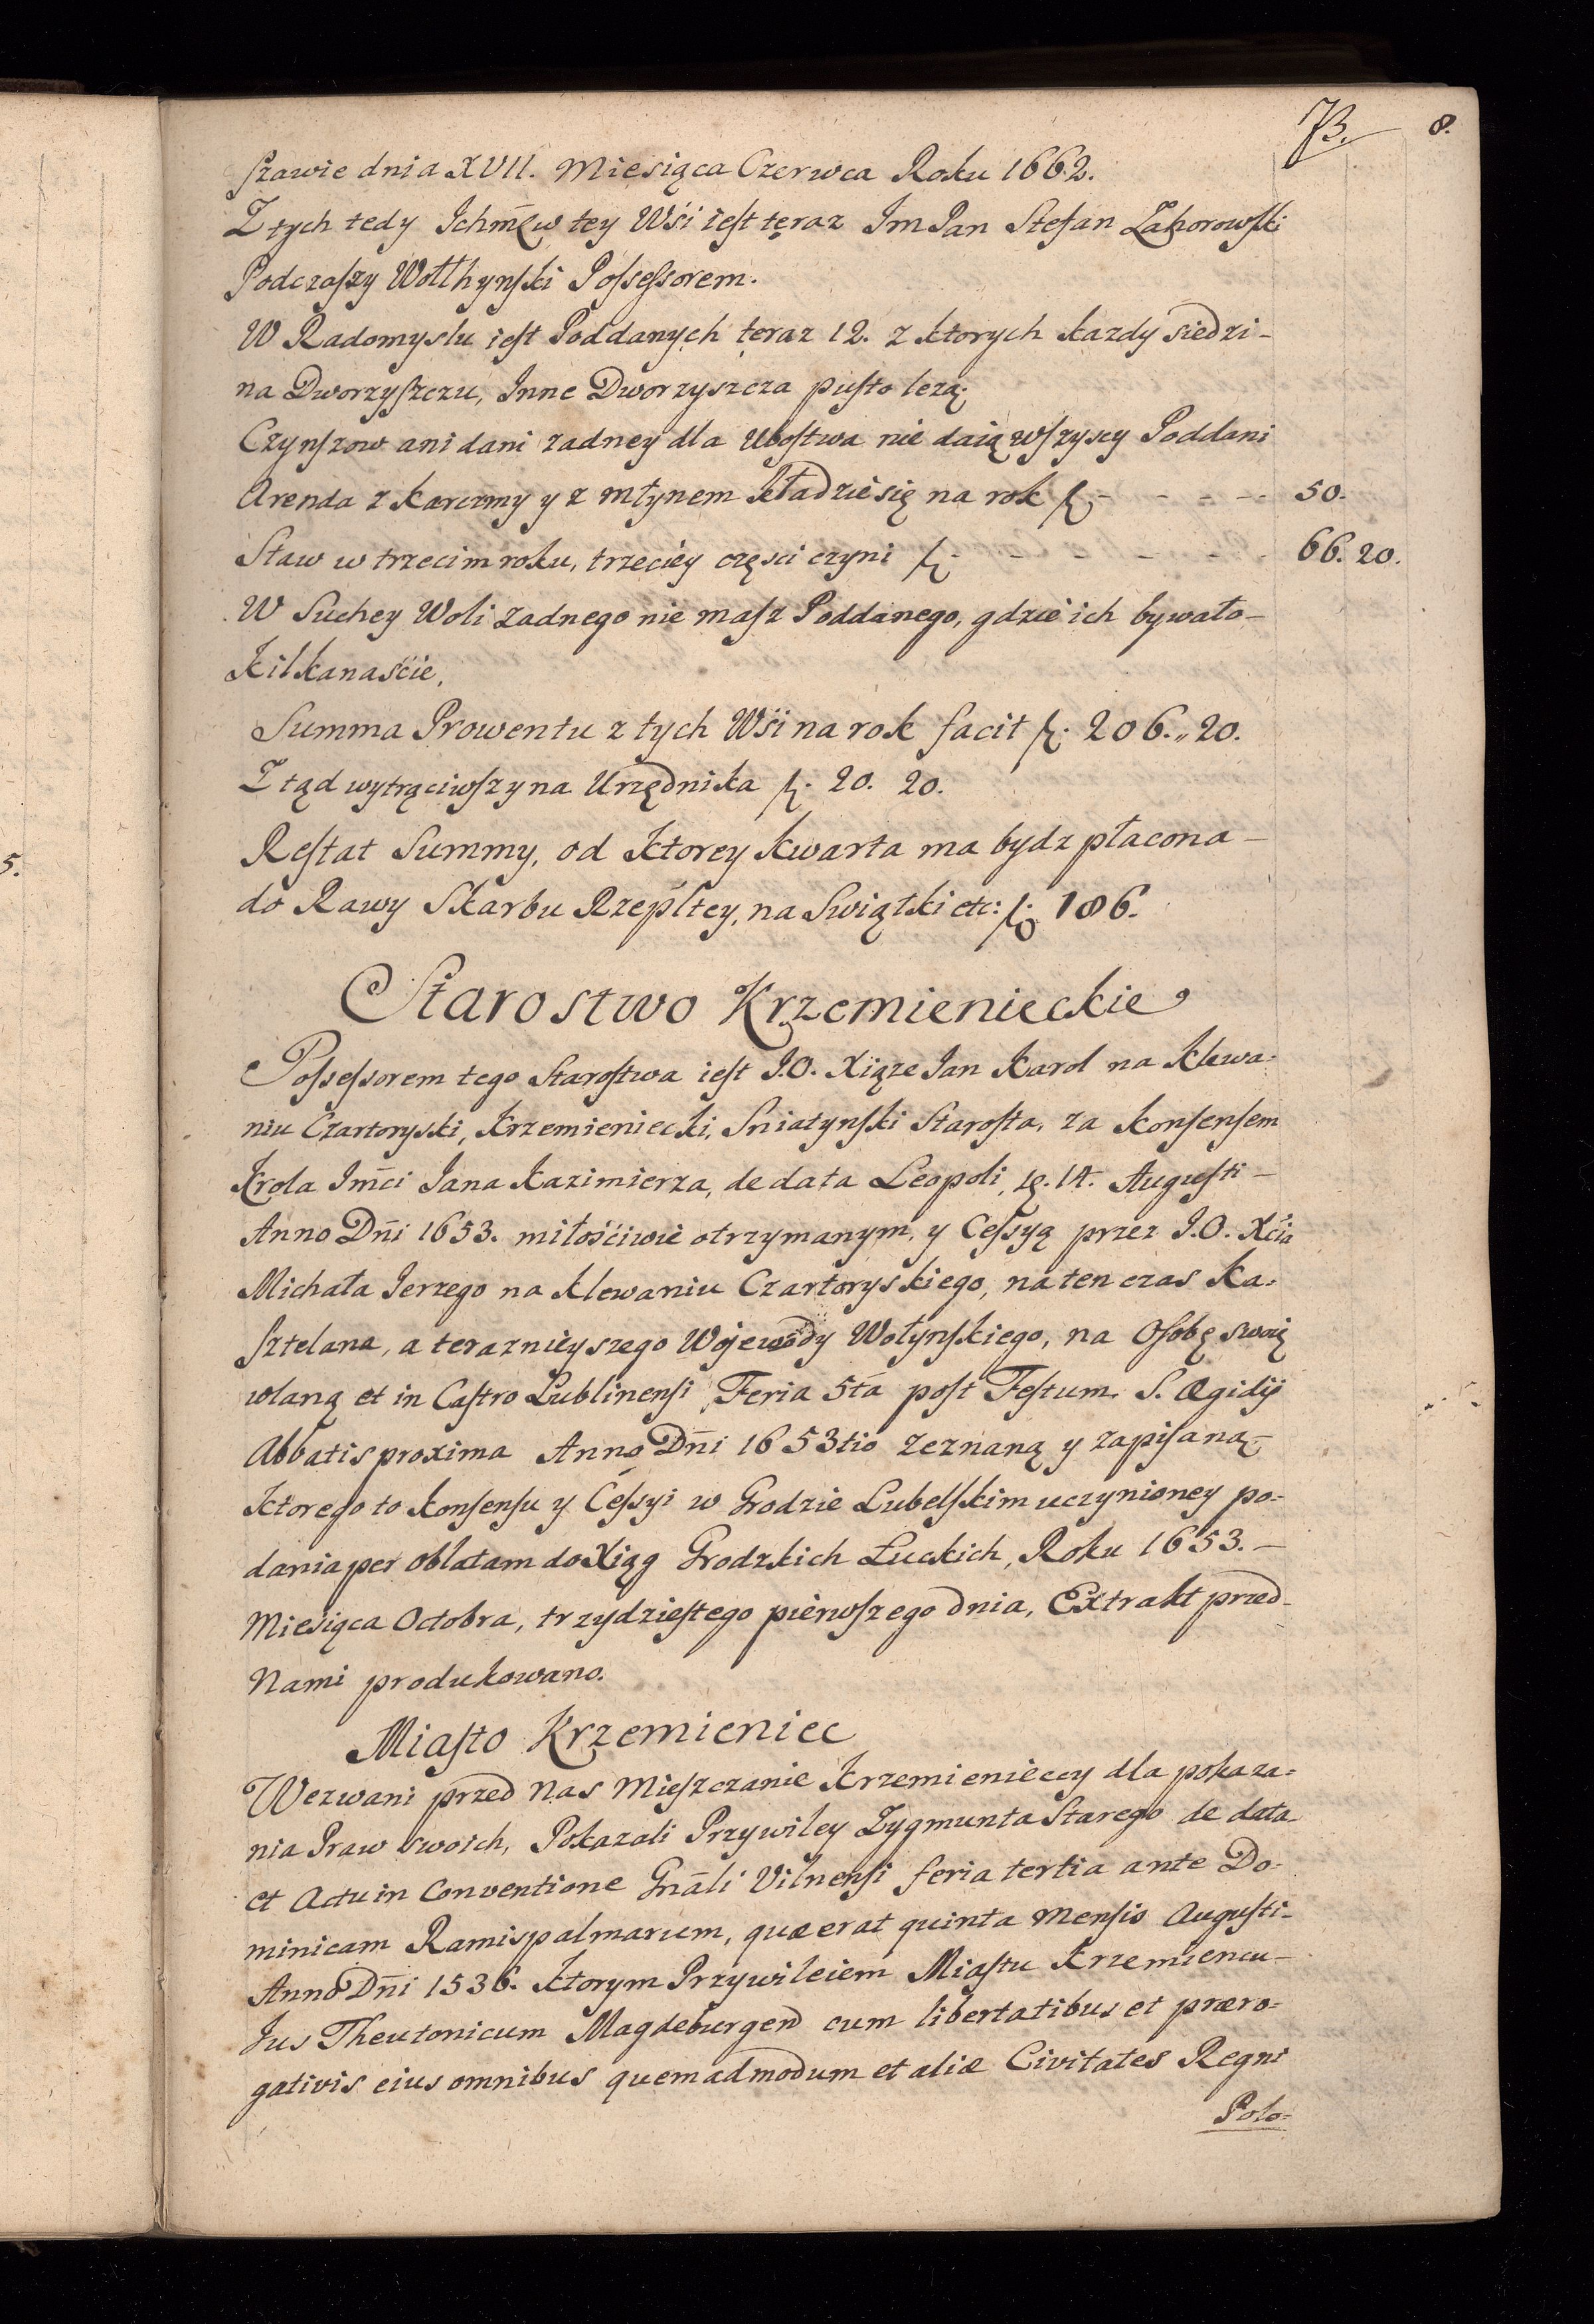 73. 8.
ſzawie dnia XVII. Miesiąca Czerwca Roku 1662.
Z tych tedy Ichm̃ẽw tey Wśi ieſt teraz Im Pan Stefan Zahorowſki
Podczaſzy Wołłhynſki Poſseſsorem.
W Radomyslu ieſt Poddanych teraz 12. z ktorych kazdy siedzi-
na Dworzyſzczu, Inne Dworzyszcza puſto lezą.
Czynſzow ani dani zadney dla Uboſtwa nie daią wſzyscy Poddani
Arenda z karczmy y z młynem kładzie się na rok f. - - - - - 50.
Staw w trzecim roku, trzeciey częsci czyni f. - - - - - - 66. 20.
W Suchey Woli zadnego nie maſz Poddanego, gdzie ich bywało-
kilkanaście.
Summa Prowentu z tych Wśi na rok facit f. 206.,, 20.
Z tąd wytrąciwſzy na Urzędnika f. 20. 20.
Reſtat Summy, od ktorey kwarta ma bydz płacona-
do Rawy Skarbu Rzepltey, na Swiątki etc: f. 186.
Starostwo Krzemienieckie
Poſseſsorem tego Staroſtwa ieſt J.O. Xiąze Jan Karol na Klewa=
niu Czartoryski, Krzemieniecki, Sniatynſki Staroſta, za konſenſem
Krola Im̃ci Jana Kazimierza, de data Leopoli, 14. Auguſti-
Anno Dñi 1653. miłośćiwie otrzymanym, y Ceſsyą przez J.O. Xcia
Michała Jerzego na Klewaniu Czartoryskiego, na ten czas Ka=
ſztelana, a teraznieyszego Wojewody Wołynſkiego, na Oſobę swoię
wlaną et in Caſtro Lublinenſi Feria 5ta poſt Feſtum S. Ægidij
Abbatis proxima Anno Dñi 1653tio zeznaną y zapiſaną-
ktorego to konſenſu y Ceſsyi w Grodzie Lubelſkim uczynioney po=
dania per oblatam do Xiąg Grodzkich Łuckich, Roku 1653.-
Miesiąca Octobra, trzydzieſtego pierwſzego dnia, Extrakt przed-
Nami produkowano.
Miaſto Krzemieniec
Wezwani przed Nas Mieſzczanie Krzemienieccy dla pokaza=
nia Praw swoich, Pokazali Przywiley Zygmunta Starego de data
et Actu in Conventione Gnãli Vilnenſi feria tertia ante Do=
minicam Ramispalmarum, quæ erat quinta Menſis Auguſti-
Anno Dñi 1536. ktorym Przywileiem Miaſtu Krzemiencu-
Jus Theutonicum Magdeburgen cum libertatibus et præro=
gativis eius omnibus quemadmodum et aliæ Civitates Regni
Polo=
5.